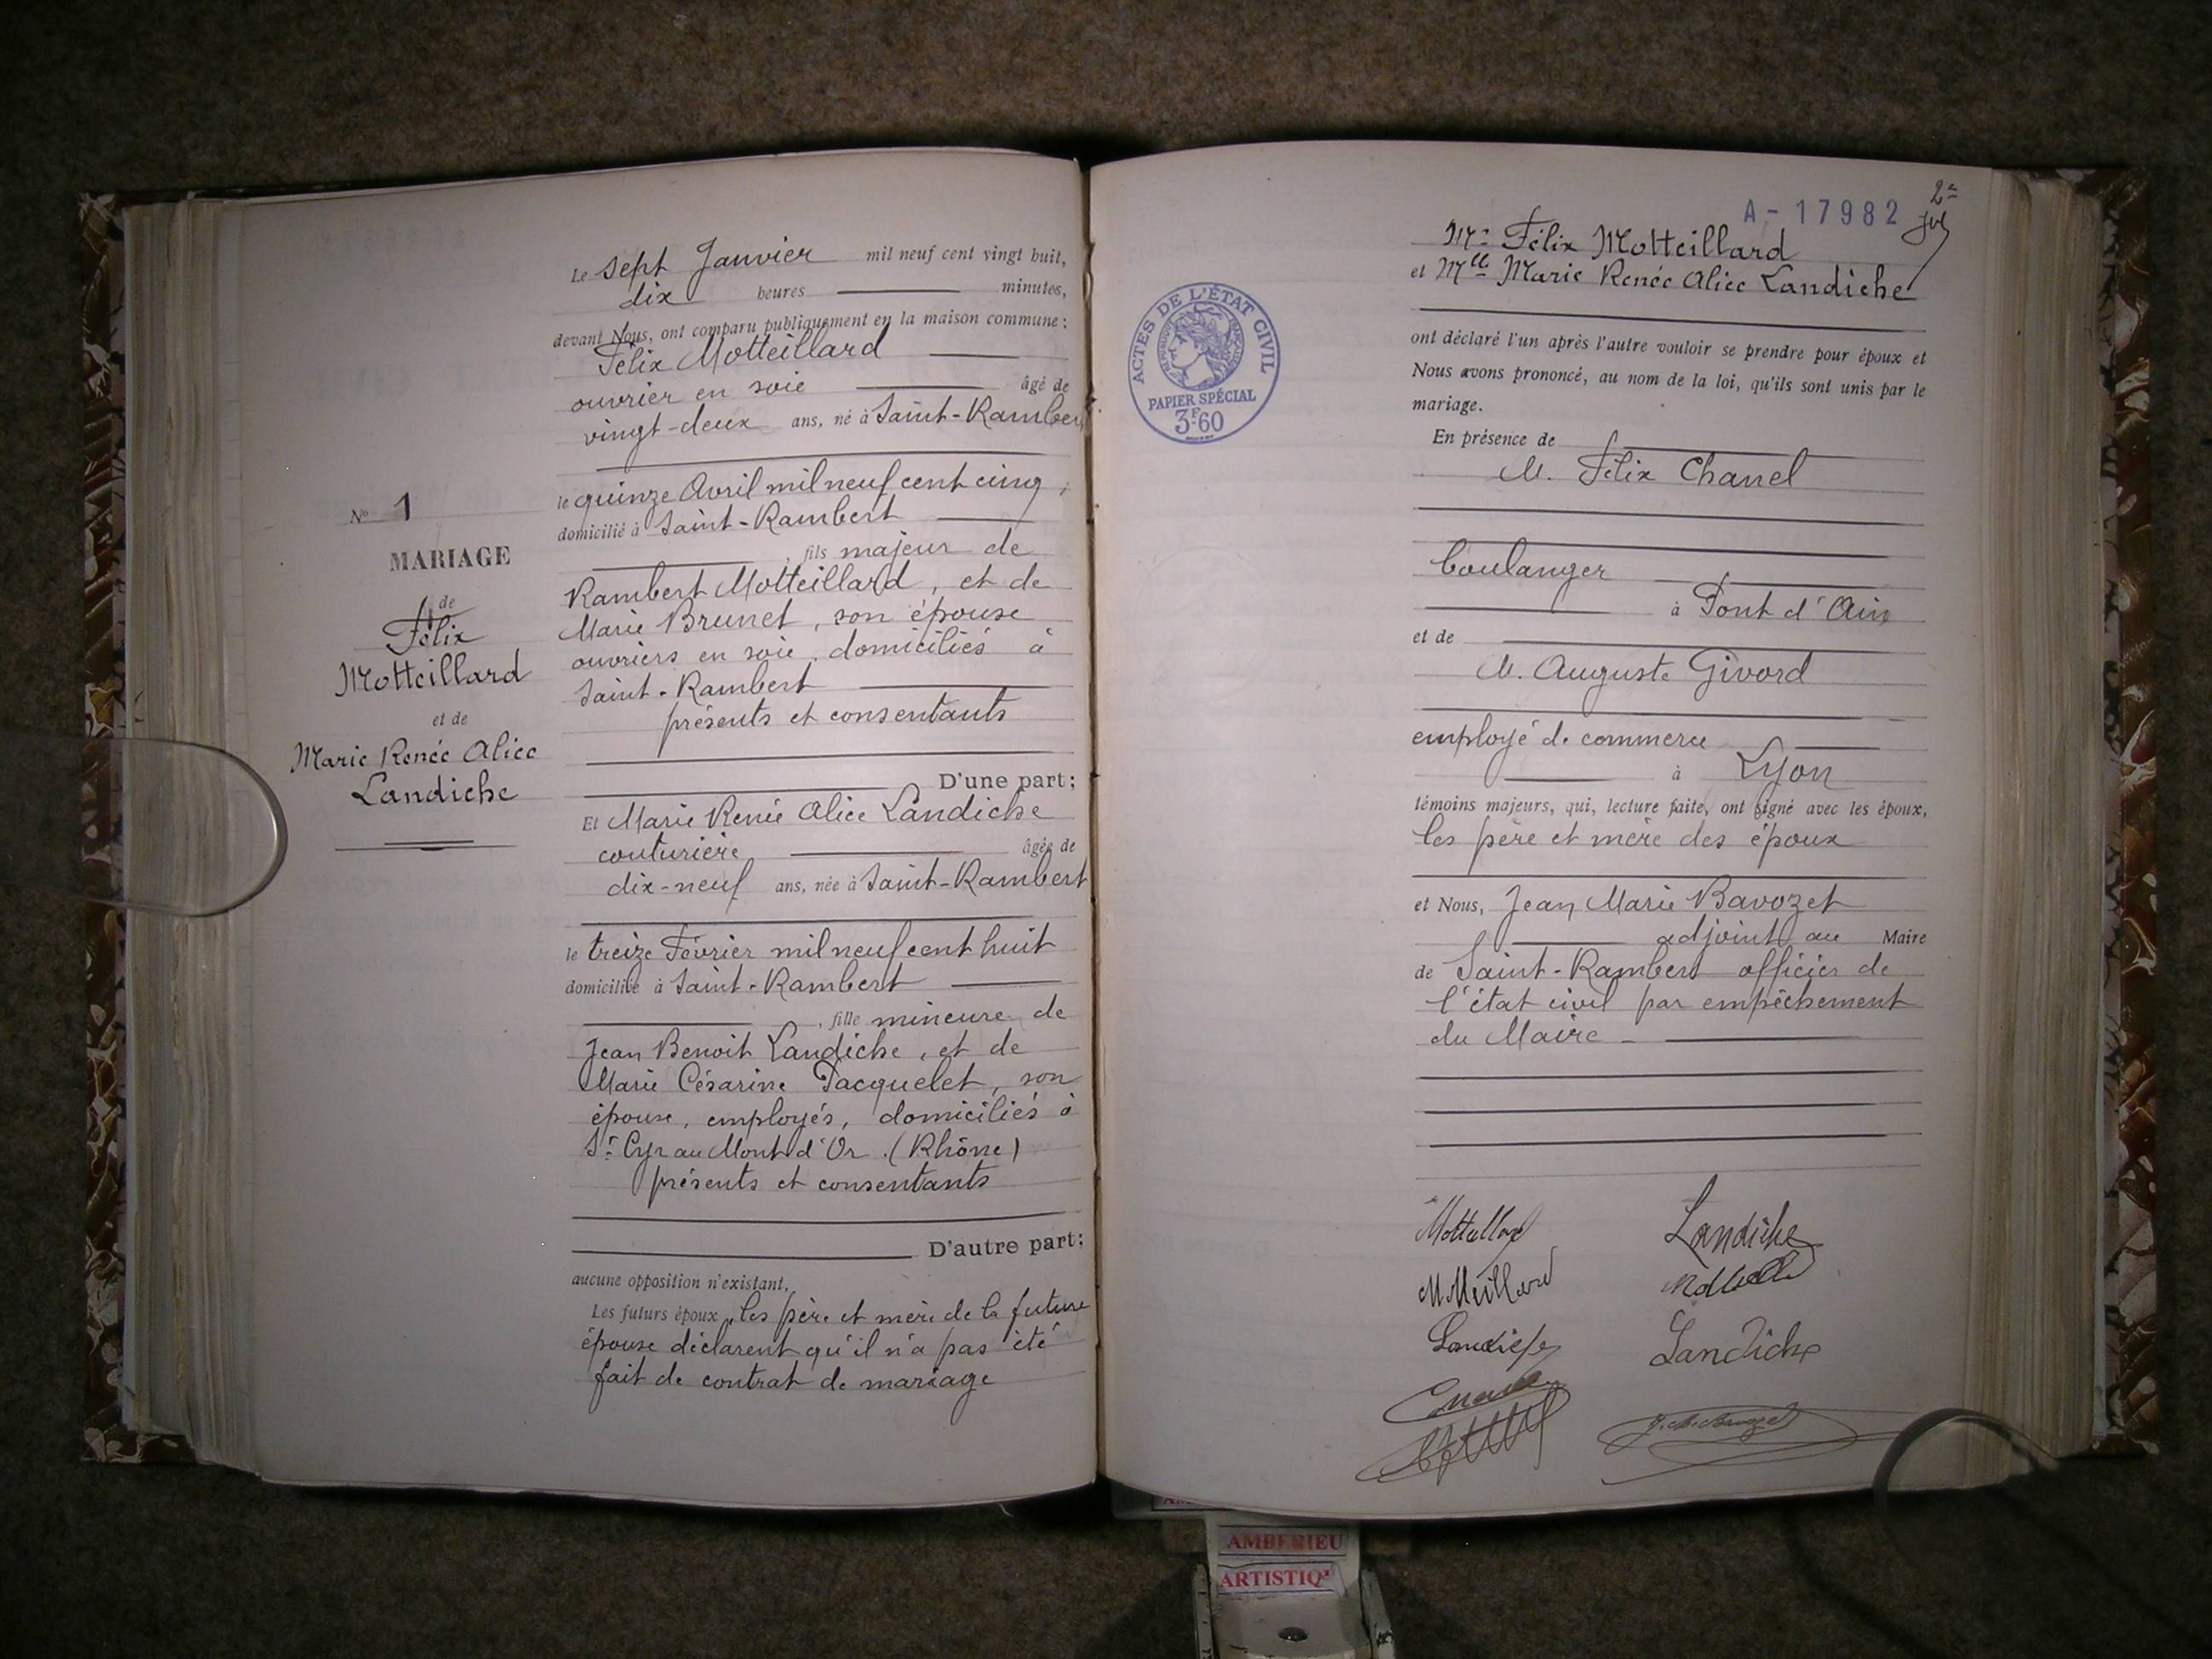 Nº 1
MARIAGE
de
Félix
Motteillard
et de
Marie Renée Alice
Landiche
Le sept Janvier mil neuf cent vingt huit,
dix heures minutes,
devant Nous, ont comparu publiquement en la maison commune :
Félix Motteillard
ouvrier en soie âgé de
vingt-deux ans, né à Saint-Rambert
le quinze Avril mil neuf cent cinq,
domicilié à Saint-Rambert
, fils majeur de
Rambert Motteillard, et de
Marie Brunet, son épouse
ouvriers en soie, domiciliés à
Saint-Rambert
présents et consentants
D'une part;
Et Marie Renée Alice Landiche
couturière âgée de
dix-neuf ans, née à Saint-Rambert
le treize Février mil neuf cent huit
domiciliée à Saint-Rambert
, fille mineure de
Jean Benoit Landiche, et de
Marie Césarine Pacquelet, son
épouse, employés, domiciliés à
St Cyr au Mont d'Or (Rhône)
présents et consentants
D'autre part;
aucune opposition n'existant.
Les futurs époux, les père et mère de la future
épouse déclarent qu'il n'a pas été
fait de contrat de mariage
A-17982
2e
ACTES DE L'ÉTAT CIVIL
PAPIER SPÉCIAL
3F60
Mr Félix Motteillard
et Mlle Marie Renée Alice Landiche
ont déclaré l'un après l'autre vouloir se prendre pour époux et
Nous avons prononcé, au nom de la loi, qu'ils sont unis par le
mariage.
En présence de
M. Félix Chanel
boulanger
à Pont d'Ain
et de
M. Auguste Givord
employé de commerce
à Lyon
témoins majeurs, qui, lecture faite, ont signé avec les époux,
les père et mère des époux
et Nous, Jean Marie Bavozet
adjoint au Maire
de Saint-Rambert officier de
l'état civil par empêchement
du Maire
Motteillard Landiche
Motteillard
Landiche Landiche
J. M. Bavozet
AMBERIEU
ARTISTIQ